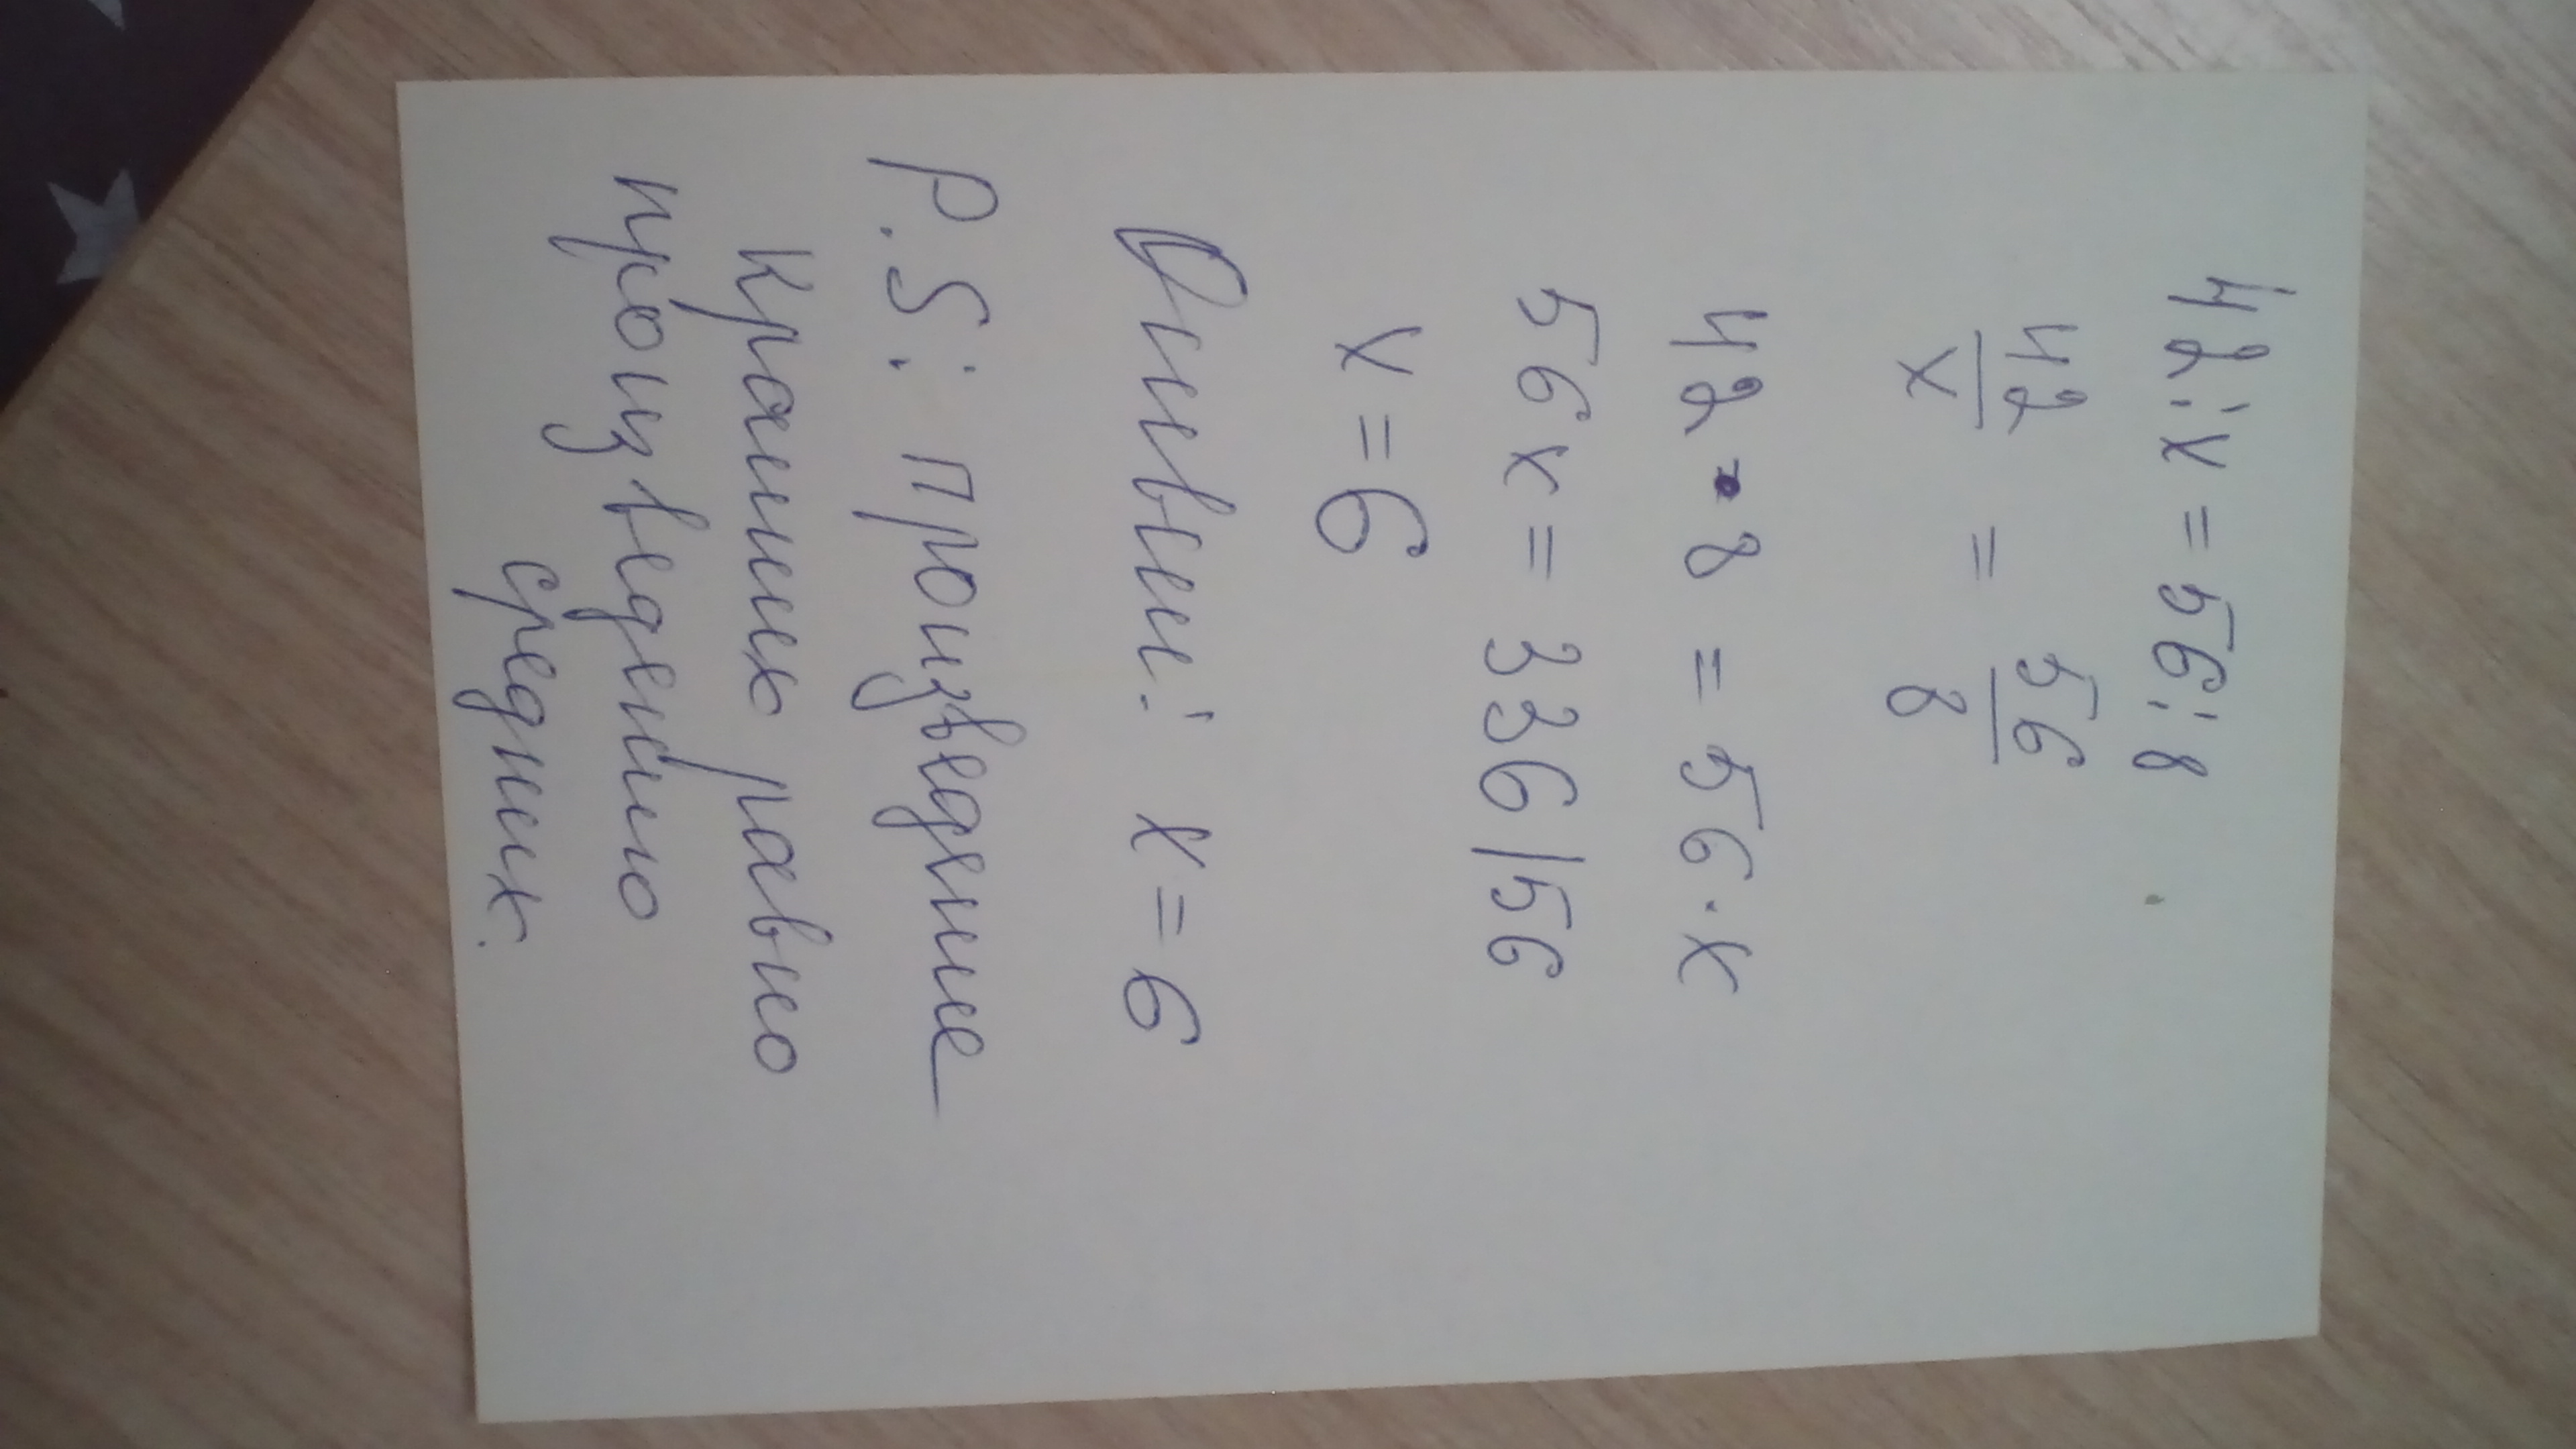 42 : x = 56 : 8
42/x = 56/8
42 • 8 = 56 · x
56x = 336 | 56
x = 6
Ответ: x = 6
P.S: Произведение
крайних равно
произведению
средних.